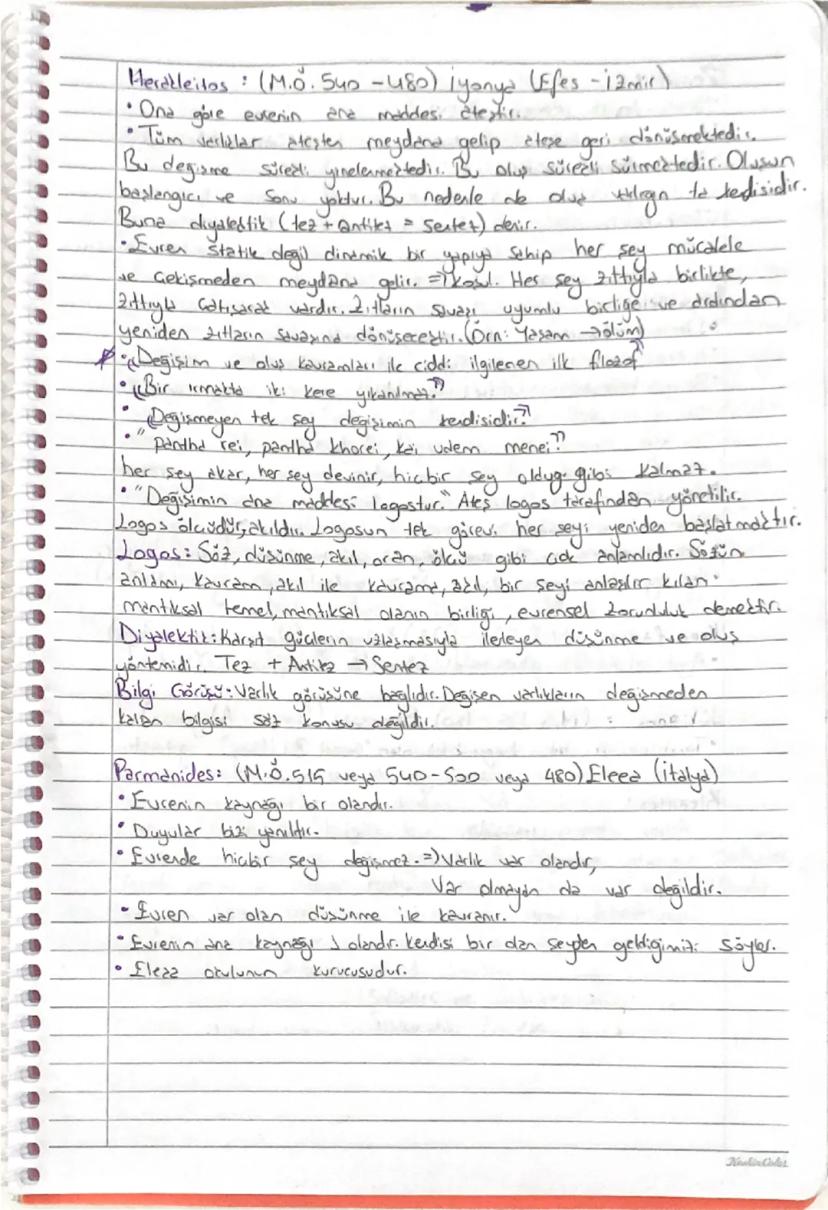 Herakleitos: (M.Ö. 540 - 480) İyonya (Efes - İzmir)
• Ona göre evrenin ana maddesi ateştir.
• Tüm varlıklar ateşten meydana gelip ateşe geri dönüşmektedir.
Bu değişme sürekli yinelenmektedir. Bu oluş sürekli sürmektedir. Oluşun
başlangıcı ve sonu yoktur. Bu nedenle de oluş varlığın ta kendisidir.
Buna diyalektik (tez + antitez = sentez) denir.
• Evren statik değil dinamik bir yapıya sahip her şey mücadele
ve çekişmeden meydana gelir. => Her şey zıttıyla birlikte,
zıttıyla çatışarak vardır. Zıtların savaşı uyumlu birliğe ve ardından
yeniden zıtların savaşına dönüşecektir. (Örn: Yaşam → ölüm)
• "Değişim ve oluş kavramları ile ciddi ilgilenen ilk filozof"
• "Bir ırmakta iki kere yıkanılmaz."
• "Değişmeyen tek şey değişimin kendisidir."
• "Pantha rei, pantha khorei, kai udem menei"
her şey akar, her şey devinir, hiçbir şey olduğu gibi kalmaz.
• "Değişimin ana maddesi logostur." Ateş logos tarafından yönetilir.
Logos ölçüdür, akıldır. Logosun tek görevi her şeyi yeniden başlatmaktır.
Logos: Söz, düşünme, akıl, oran, ölçü gibi çok anlamlıdır. Sözün
anlamı, kavram, akıl ile kavrama, akıl, bir şeyi anlaşılır kılan
mantıksal temel, mantıksal olanın birliği, evrensel zorunluluk demektir.
Diyalektik: Karşıt güçlerin uzlaşmasıyla ilerleyen düşünme ve oluş
yöntemidir. Tez + Antitez → Sentez
Bilgi Görüşü: Varlık görüşüne bağlıdır. Değişen varlıkların değişmeden
kalan bilgisi söz konusu değildir.
Parmanides: (M.Ö. 515 veya 540 - 500 veya 480) Eleea (İtalya)
• Evrenin kaynağı bir olandır.
• Duyular bizi yanıltır.
• Evrende hiçbir şey değişmez. => Varlık var olandır,
Var olmayan da var değildir.
• Evren var olan düşünme ile kavranır.
• Evrenin ana kaynağı 1 olandır. Kendisi bir olan şeyden geldiğimizi söyler.
• Eleaa okulunun kurucusudur.